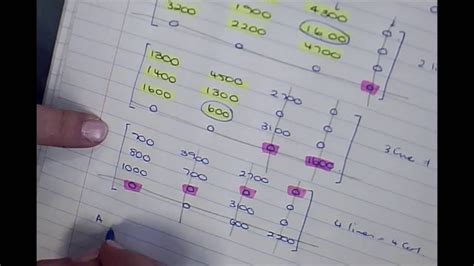 1900 4300 0
3200 2200 1600 0
0 0 4700 0
0
2 l
1300 4500 2700 0
1400 1300 0 0
1600 600 3100 0
0 0 0 1600
3 line
700 3900 2100 0
800 700 0 0
1000 0 3100 0
0 0 600 2200
4 lines = 4
A